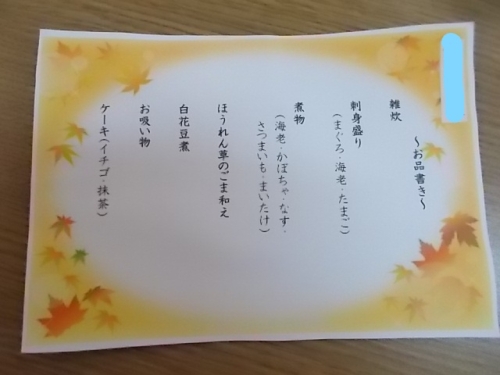 ～お品書き～
雑炊
刺身盛り
(まぐろ・海老・たまご)
煮物
(海老・かぼちゃ・なす・
さつまいも・まいたけ)
ほうれん草のごま和え
白花豆煮
お吸い物
ケーキ(イチゴ・抹茶)